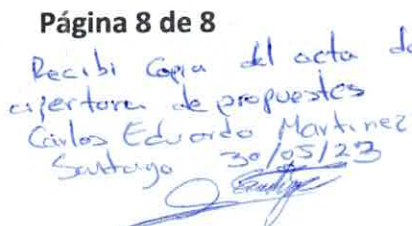 Página 8 de 8
Recibi Copia del acta de
apertura de propuestas
Carlos Eduardo Martinez
Santiago 30/05/23